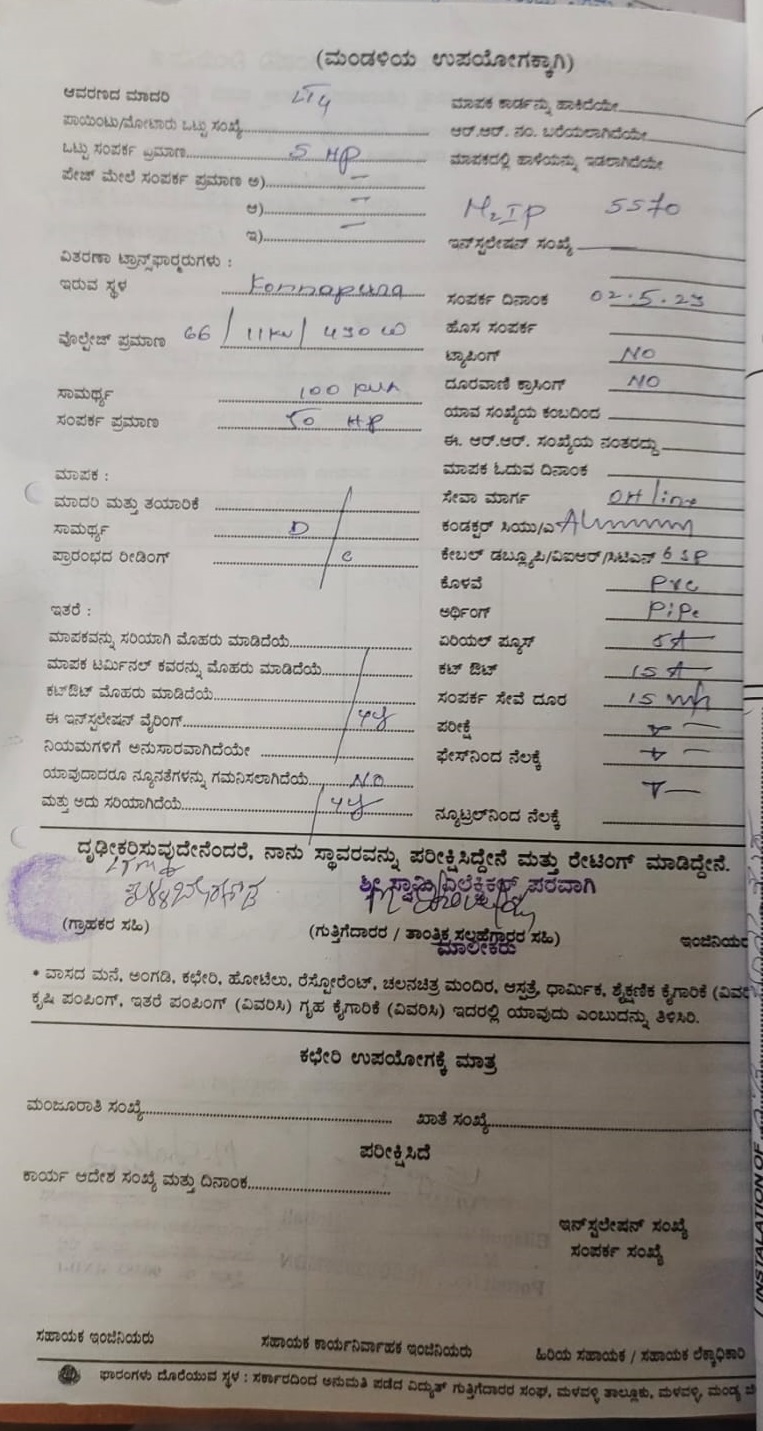 (ಮಂಡಳಿಯ ಉಪಯೋಗಕ್ಕಾಗಿ)
ಆವರಣದ ಮಾದರಿ LT4
ಪಾಯಿಂಟು/ಮೋಟಾರು ಒಟ್ಟು ಸಂಖ್ಯೆ
ಒಟ್ಟು ಸಂಪರ್ಕ ಪ್ರಮಾಣ 5 HP
ಪೇಜ್ ಮೇಲೆ ಸಂಪರ್ಕ ಪ್ರಮಾಣ ಅ) –
ಆ) –
ಇ) –
ವಿತರಣಾ ಟ್ರಾನ್ಸ್‌ಫಾರ್‍ಮರುಗಳು :
ಇರುವ ಸ್ಥಳ
ವೋಲ್ಟೇಜ್ ಪ್ರಮಾಣ 66 / 11KV /
ಸಾಮರ್ಥ್ಯ 100 KVA
ಸಂಪರ್ಕ ಪ್ರಮಾಣ 50 HP
ಮಾಪಕ :
ಮಾದರಿ ಮತ್ತು ತಯಾರಿಕೆ
ಸಾಮರ್ಥ್ಯ D
ಪ್ರಾರಂಭದ ರೀಡಿಂಗ್ C
ಇತರೆ :
ಮಾಪಕವನ್ನು ಸರಿಯಾಗಿ ಮೊಹರು ಮಾಡಿದೆಯೆ
ಮಾಪಕ ಟರ್ಮಿನಲ್ ಕವರನ್ನು ಮೊಹರು ಮಾಡಿದೆಯೆ
ಕಟ್‌ಔಟ್ ಮೊಹರು ಮಾಡಿದೆಯೆ
ಈ ಇನ್‌ಸ್ಟಲೇಷನ್ ವೈರಿಂಗ್
ನಿಯಮಗಳಿಗೆ ಅನುಸಾರವಾಗಿದೆಯೇ
ಯಾವುದಾದರೂ ನ್ಯೂನತೆಗಳನ್ನು ಗಮನಿಸಲಾಗಿದೆಯೆ NO
ಮತ್ತು ಅದು ಸರಿಯಾಗಿದೆಯೆ
ಮಾಪಕ ಕಾರ್ಡನ್ನು ಹಾಕಿದೆಯೇ
ಆರ್.ಆರ್. ನಂ. ಬರೆಯಲಾಗಿದೆಯೇ
ಮಾಪಕದಲ್ಲಿ ಹಾಳೆಯನ್ನು ಇಡಲಾಗಿದೆಯೇ
M2IP 5570
ಇನ್‌ಸ್ಟಲೇಷನ್ ಸಂಖ್ಯೆ
ಸಂಪರ್ಕ ದಿನಾಂಕ 02.5.23
ಹೊಸ ಸಂಪರ್ಕ
ಟ್ಯಾಪಿಂಗ್ NO
ದೂರವಾಣಿ ಕ್ರಾಸಿಂಗ್ NO
ಯಾವ ಸಂಖ್ಯೆಯ ಕಂಬದಿಂದ
ಈ. ಆರ್.ಆರ್. ಸಂಖ್ಯೆಯ ನಂತರದ್ದು
ಮಾಪಕ ಓದುವ ದಿನಾಂಕ
ಸೇವಾ ಮಾರ್ಗ OH line
ಕಂಡಕ್ಟರ್ ಸಿಯು/ಎ
ಕೇಬಲ್ ಡಬ್ಲ್ಯೂಪಿ/ವಿಐಆರ್/ಸಿಟಿಎನ್
ಕೊಳವೆ PVC
ಅರ್ಥಿಂಗ್ PiPe
ಏರಿಯಲ್ ಫ್ಯೂಸ್ 5A
ಕಟ್ ಔಟ್ 15A
ಸಂಪರ್ಕ ಸೇವೆ ದೂರ 15
ಪರೀಕ್ಷೆ
ಫೇಸ್‌ನಿಂದ ನೆಲಕ್ಕೆ
ನ್ಯೂಟ್ರಲ್‌ನಿಂದ ನೆಲಕ್ಕೆ
ದೃಢೀಕರಿಸುವುದೇನೆಂದರೆ, ನಾನು ಸ್ಥಾವರವನ್ನು ಪರೀಕ್ಷಿಸಿದ್ದೇನೆ ಮತ್ತು ರೇಟಿಂಗ್ ಮಾಡಿದ್ದೇನೆ.
ಶ್ರೀ ಸ್ವಾಮಿ ಎಲೆಕ್ಟ್ರಿಕಲ್ಸ್ ಪರವಾಗಿ
(ಗ್ರಾಹಕರ ಸಹಿ) (ಗುತ್ತಿಗೆದಾರರ / ತಾಂತ್ರಿಕ ಸಲಹೆಗಾರರ ಸಹಿ) ಇಂಜಿನಿಯರ
ಮಾಲೀಕರು
* ವಾಸದ ಮನೆ, ಅಂಗಡಿ, ಕಛೇರಿ, ಹೋಟೆಲು, ರೆಸ್ಟೋರೆಂಟ್, ಚಲನಚಿತ್ರ ಮಂದಿರ, ಆಸ್ಪತ್ರೆ, ಧಾರ್ಮಿಕ, ಶೈಕ್ಷಣಿಕ ಕೈಗಾರಿಕೆ
ಕೃಷಿ ಪಂಪಿಂಗ್, ಇತರೆ ಪಂಪಿಂಗ್ (ವಿವರಿಸಿ) ಗೃಹ ಕೈಗಾರಿಕೆ (ವಿವರಿಸಿ) ಇದರಲ್ಲಿ ಯಾವುದು ಎಂಬುದನ್ನು ತಿಳಿಸಿರಿ.
ಕಛೇರಿ ಉಪಯೋಗಕ್ಕೆ ಮಾತ್ರ
ಮಂಜೂರಾತಿ ಸಂಖ್ಯೆ ಖಾತೆ ಸಂಖ್ಯೆ
ಪರೀಕ್ಷಿಸಿದೆ
ಕಾರ್ಯ ಆದೇಶ ಸಂಖ್ಯೆ ಮತ್ತು ದಿನಾಂಕ
ಇನ್‌ಸ್ಟಲೇಷನ್ ಸಂಖ್ಯೆ
ಸಂಪರ್ಕ ಸಂಖ್ಯೆ
ಸಹಾಯಕ ಇಂಜಿನಿಯರು ಸಹಾಯಕ ಕಾರ್ಯನಿರ್ವಾಹಕ ಇಂಜಿನಿಯರು ಹಿರಿಯ ಸಹಾಯಕ / ಸಹಾಯಕ ಲೆಕ್ಕಾಧಿಕಾರಿ
ಫಾರಂಗಳು ದೊರೆಯುವ ಸ್ಥಳ : ಸರ್ಕಾರದಿಂದ ಅನುಮತಿ ಪಡೆದ ವಿದ್ಯುತ್ ಗುತ್ತಿಗೆದಾರರ ಸಂಘ, ಮಳವಳ್ಳಿ ತಾಲ್ಲೂಕು, ಮಳವಳ್ಳಿ, ಮಂಡ್ಯ